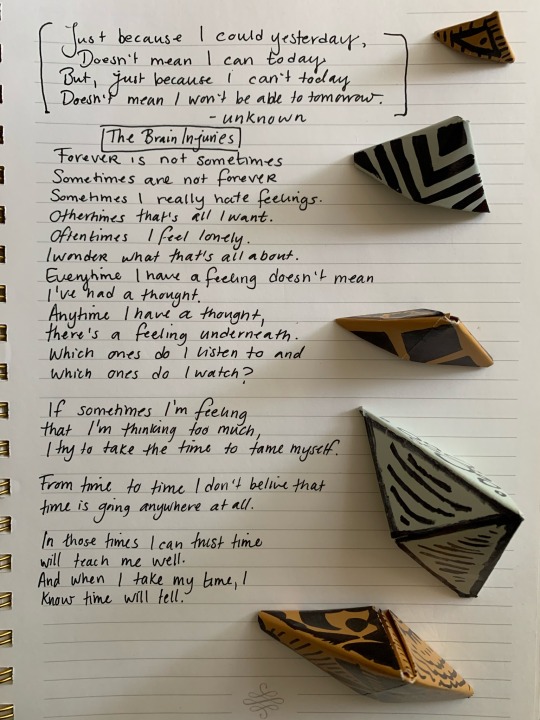 Just because I could yesterday,
Doesn't mean I can today
But, just because i can't today
Doesn't mean I won't be able to tomorrow.
- unknown
The Brain Injuries
Forever is not sometimes
Sometimes are not forever
Sometimes I really hate feelings.
Othertimes that's all I want.
Oftentimes I feel lonely.
I wonder what that's all about.
Everytime I have a feeling doesn't mean
I've had a thought.
Anytime I have a thought,
there's a feeling underneath.
Which ones do I listen to and
which ones do I watch?
If sometimes I'm feeling
that I'm thinking too much,
I try to take the time to tame myself.
From time to time I don't belive that
time is going anywhere at all.
In those times I can trust time
will teach me well.
And when I take my time, I
know time will tell.